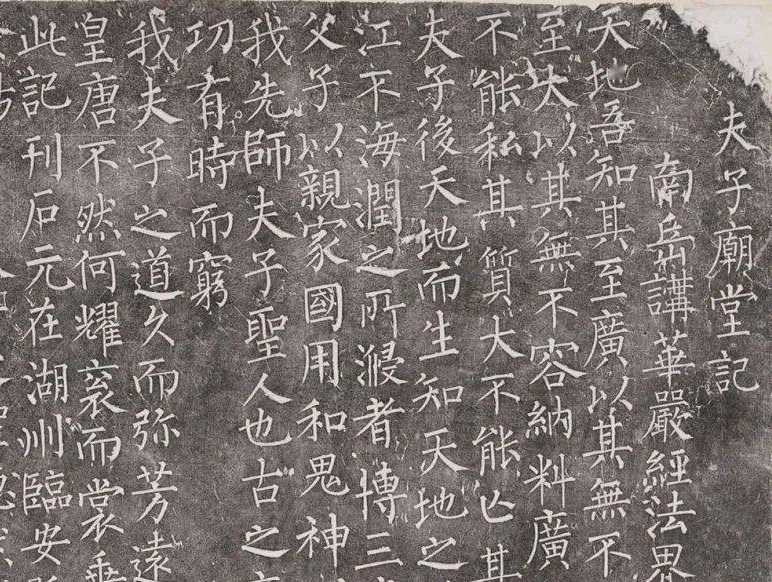 夫子廟堂記
南岳講華嚴經法界
天地吾知其至廣以其無不
至大以其無不容納料廣
不能私其質大不能亡其
夫子後天地而生知天地之
江不海潤之所浸者博三
父子以親家國用和鬼神
我先師夫子聖人也古之
功有時而窮
我夫子之道久而弥芳遠
皇唐不然何耀袞而裳垂
此記刊石元在湖州臨安